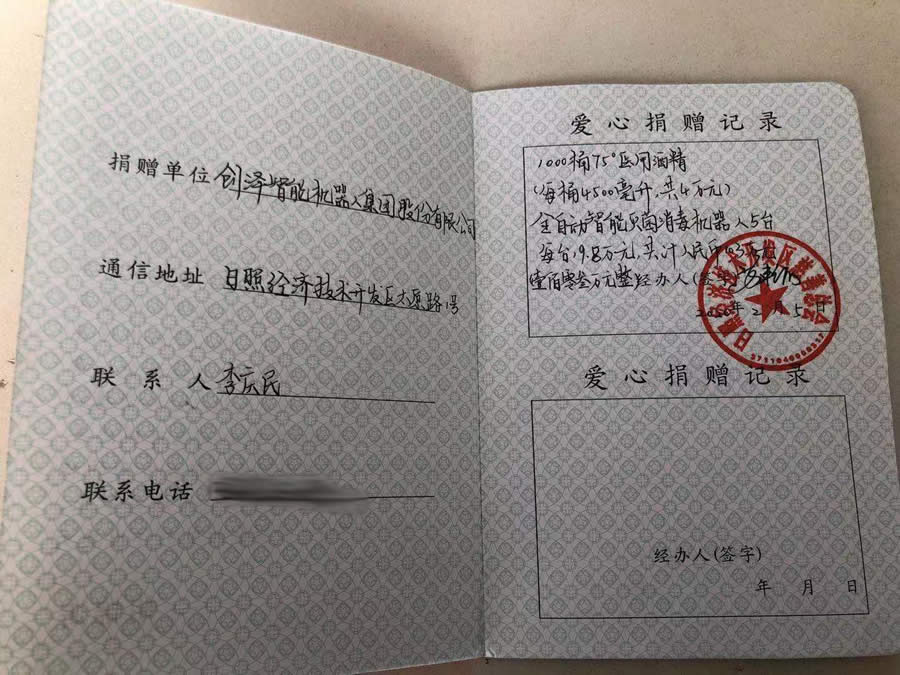 捐赠单位 创泽智能机器人集团股份有限公司
通信地址 日照经济技术开发区太原路 号
联系人 李庆民
联系电话
爱心捐赠记录
1000桶75°医用酒精
(每桶4500毫升,共4万元)
全自动智能灭菌消毒机器人5台
每台19.8万元,共计人民币
壹佰零叁万元整 经办人(签字)
2020年2月5日
3711040008337
爱心捐赠记录
经办人(签字)
年 月 日